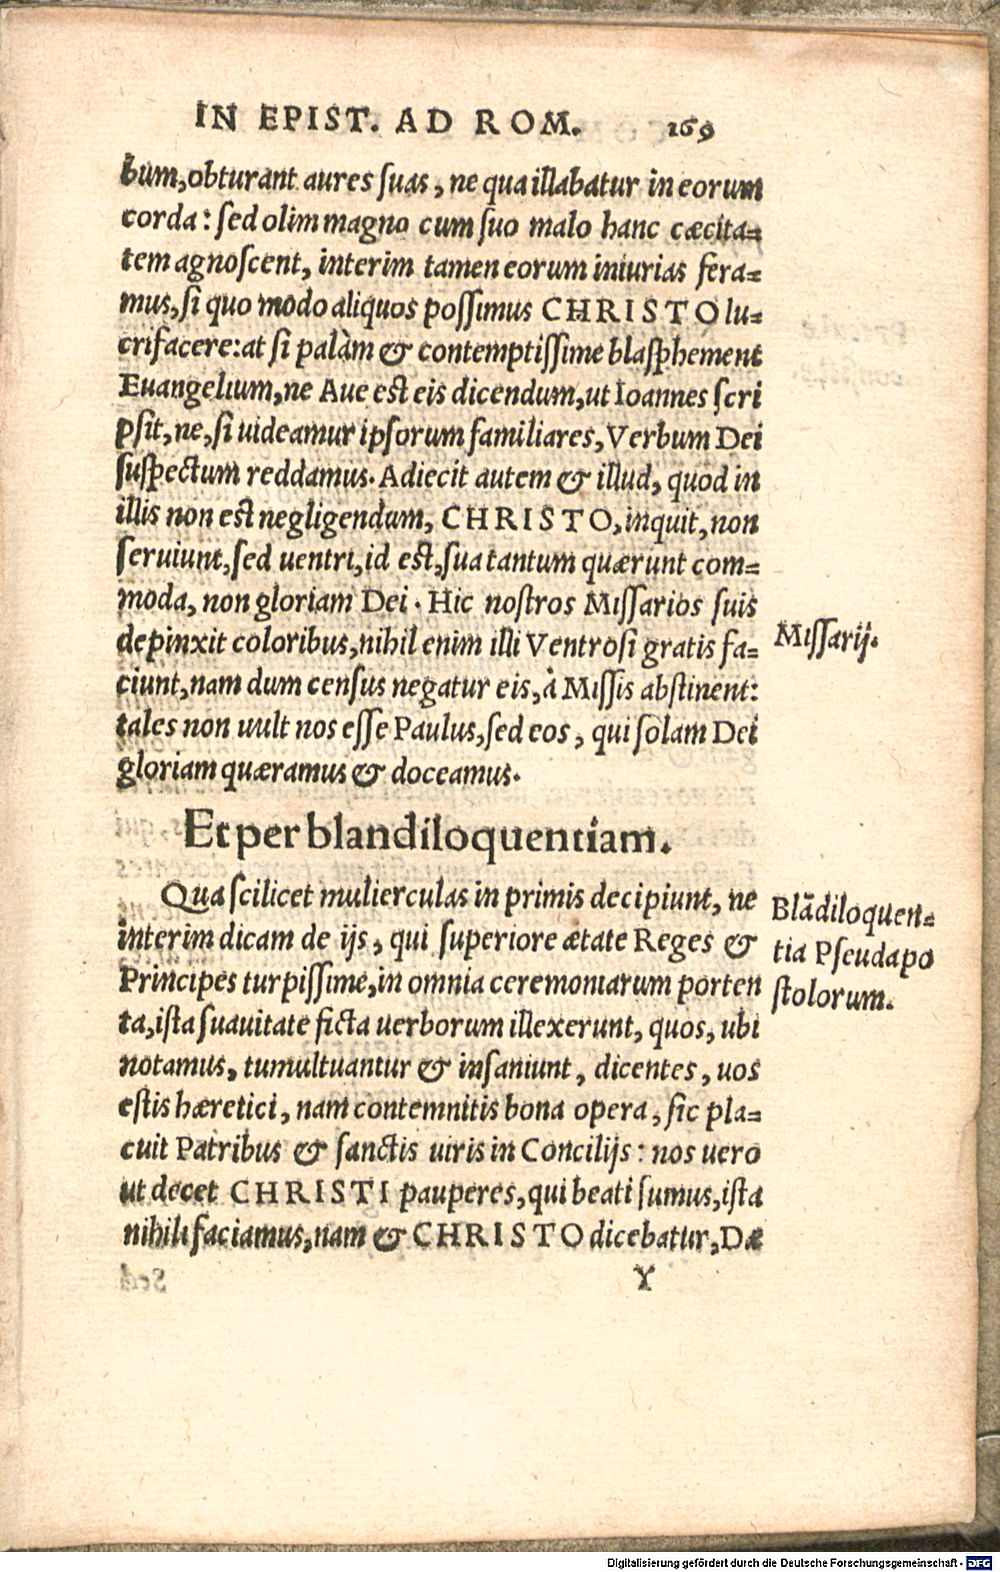 IN EPIST. AD ROM. 169
bum, obturant aures ſuas, ne qua illabatur in eorum
corda: ſed olim magno cum ſuo malo hanc cæcita=
tem agnoſcent, interim tamen eorum iniurias fera=
mus, ſi quo modo aliquos poſſimus CHRISTO lu=
crifacere: at ſi palàm & contemptiſſime blaſphement
Euangelium, ne Aue eſt eis dicendum, ut Ioannes ſcri
pſit, ne, ſi uideamur ipſorum familiares, Verbum Dei
ſuſpectum reddamus. Adiecit autem & illud, quod in
illis non eſt negligendum, CHRISTO, inquit, non
ſeruiunt, ſed uentri, id eſt, ſua tantum quærunt com=
moda, non gloriam Dei. Hic noſtros Miſſarios ſuis
depinxit coloribus, nihil enim illi Ventroſi gratis fa=
ciunt, nam dum cenſus negatur eis, à Miſſis abſtinent:
tales non uult nos eſſe Paulus, ſed eos, qui ſolam Dei
gloriam quæramus & doceamus.
Miſſarij.
Et per blandiloquentiam.
Qua ſcilicet mulierculas in primis decipiunt, ne
interim dicam de ijs, qui ſuperiore ætate Reges &
Principes turpiſſime, in omnia ceremoniarum porten
ta, iſta ſuauitate ficta uerborum illexerunt, quos, ubi
notamus, tumultuantur & inſaniunt, dicentes, uos
eſtis hæretici, nam contemnitis bona opera, ſic pla=
cuit Patribus & ſanctis uiris in Concilijs: nos uero
ut decet CHRISTI pauperes, qui beati ſumus, iſta
nihili faciamus, nam & CHRISTO dicebatur, Dæ
Blãdiloquen=
tia Pſeudapo
ſtolorum.
Y
Digitalisierung gefördert durch die Deutsche Forschungsgemeinschaft - DFG